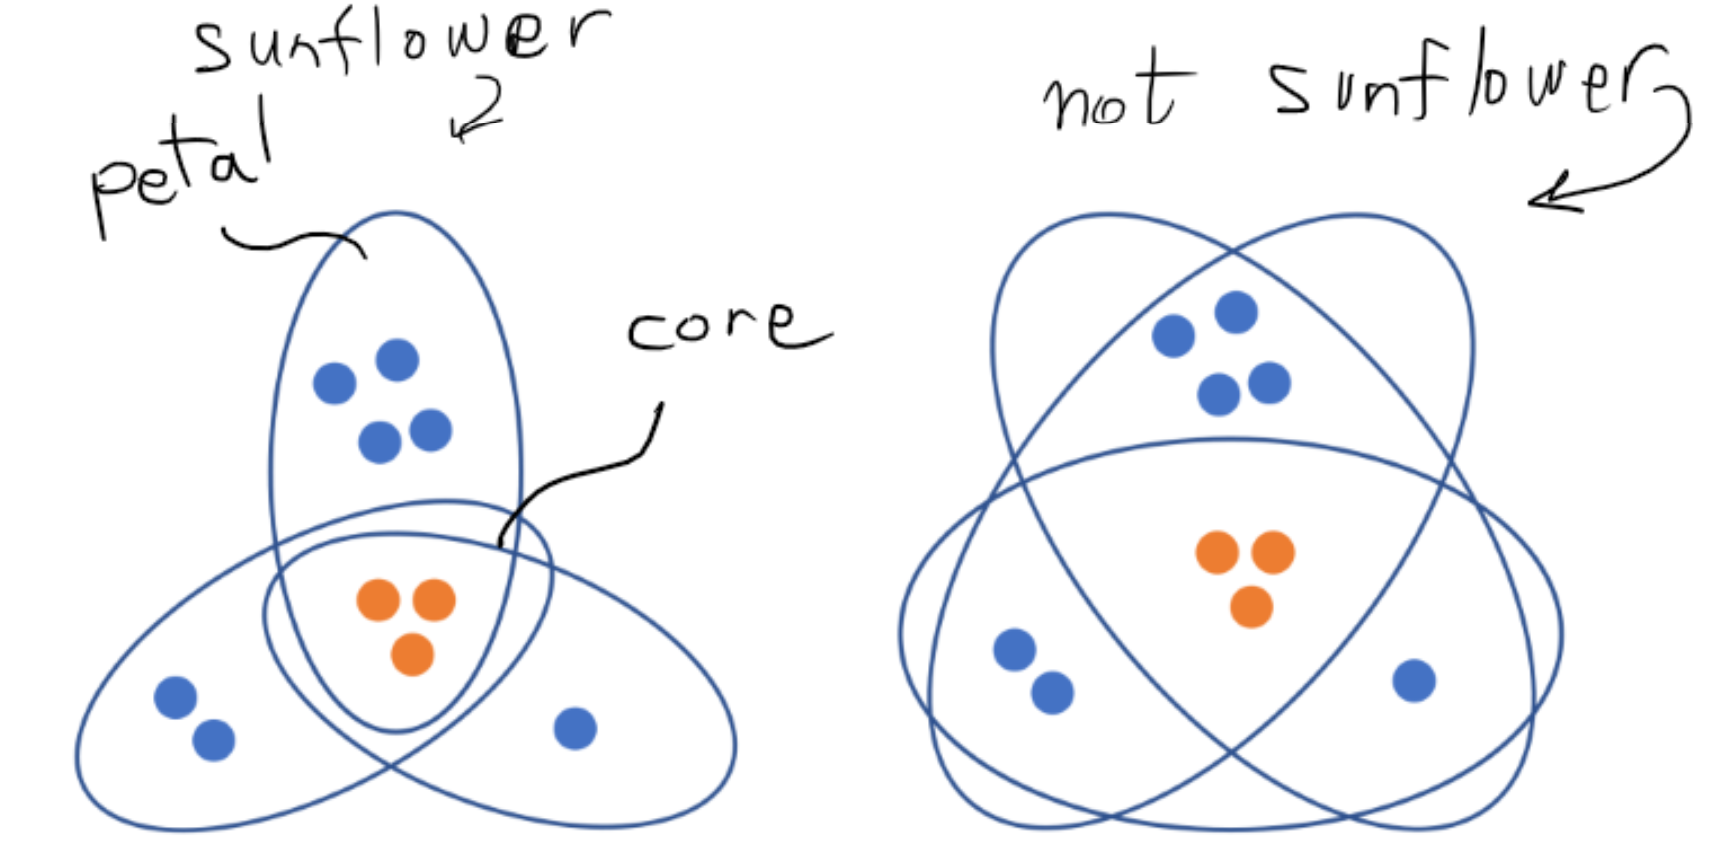 sunflower
petal
core
not sunflower